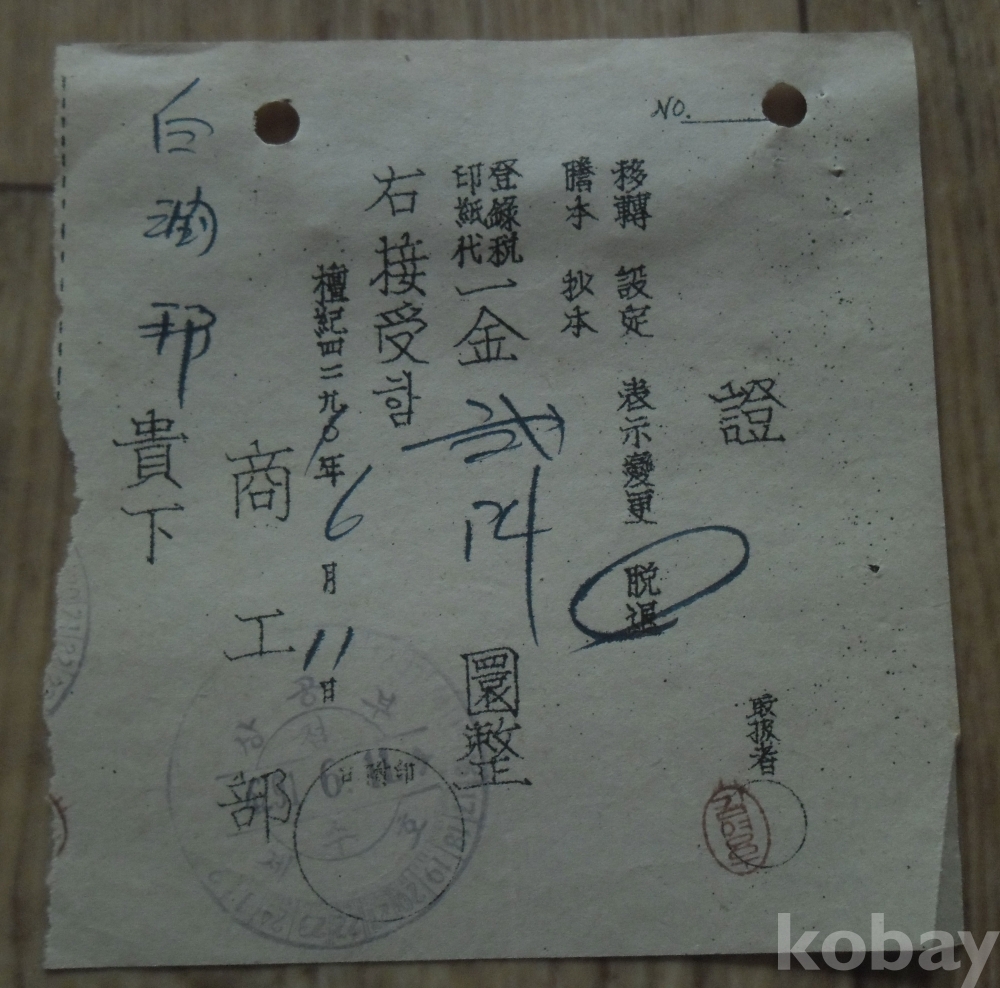 NO.
證
取扱者
移轉 設定 表示變更 脫退
謄本 抄本
登錄稅
印紙代
一金 貳阡 圜整
右接受함
檀紀四二九6年6月11日
商工部
日附印
白潤邦貴下
kobay